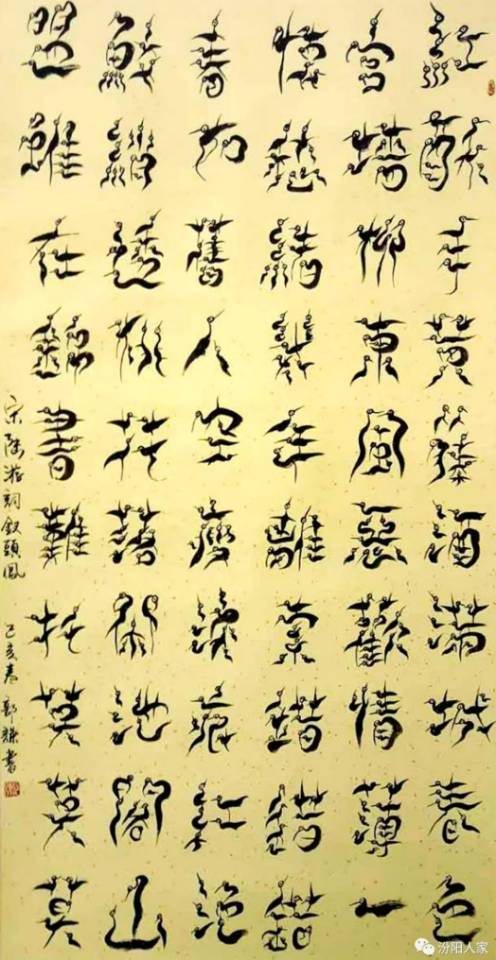 紅酥手黃籐酒滿城春色
宮牆柳東風惡歡情薄一
懷愁緒幾年離索錯錯錯
春如舊人空瘦淚痕紅浥
鮫綃透桃花落閒池閣山
盟雖在錦書難托莫莫莫
宋陸游詞釵頭鳳 己亥春 郭書
汾阳人家